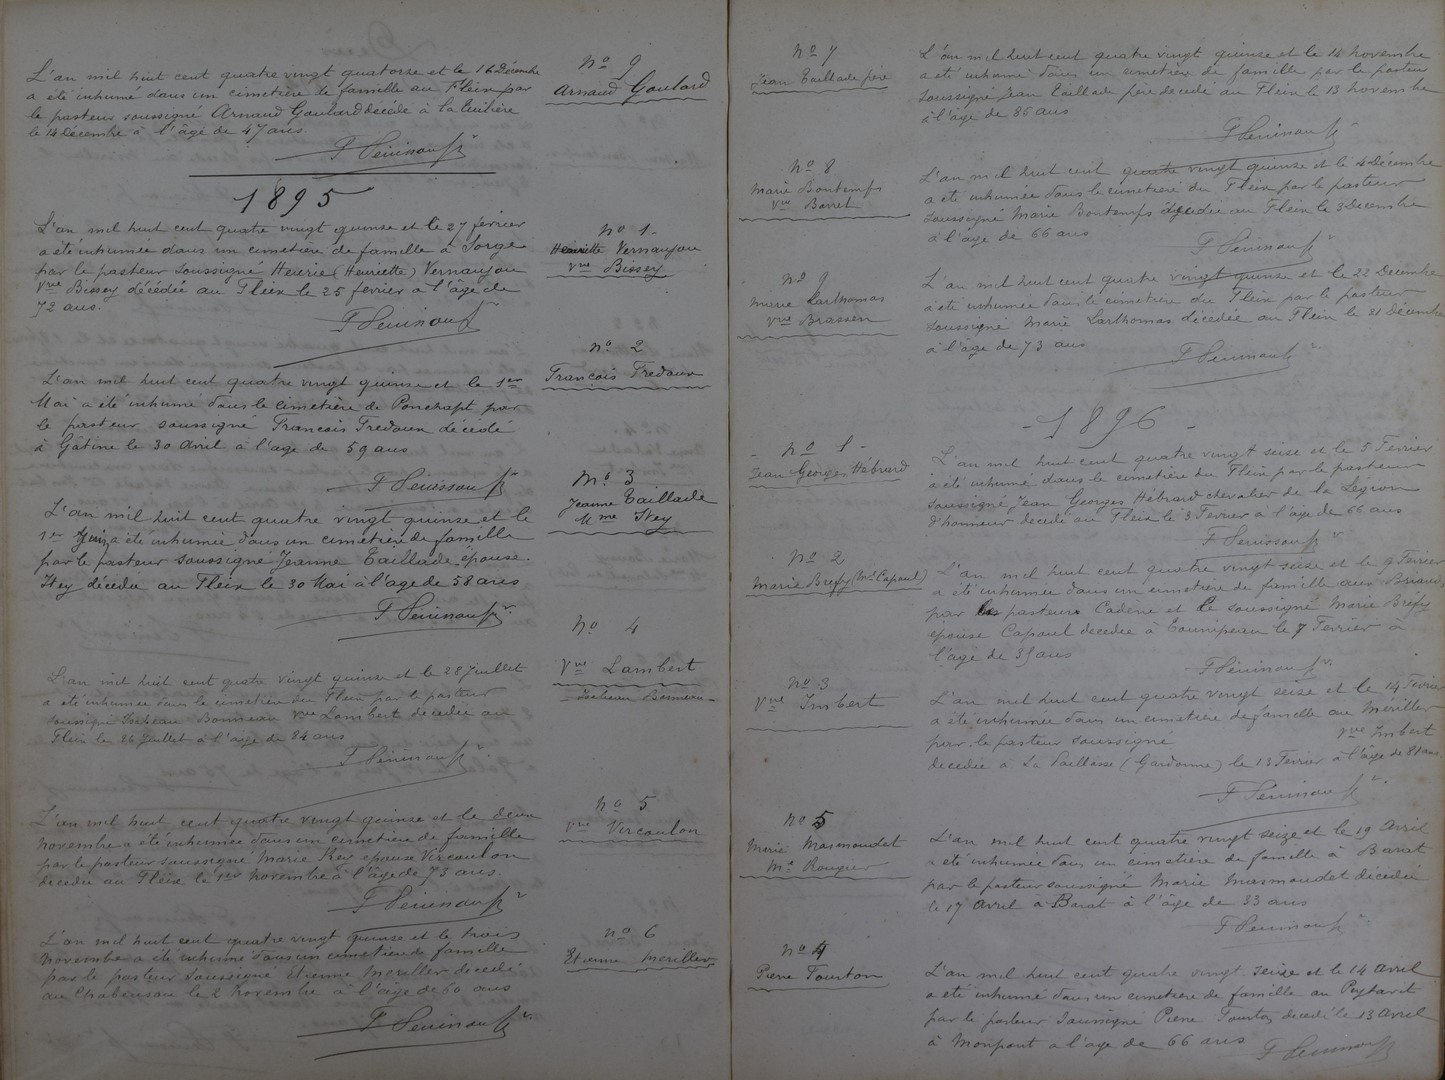 L'an mil huit cent quatre vingt quatorze et le 16 Décembre
a été inhumé dans un cimetière de famille au Fleix par
le pasteur soussigné Arnaud Goulard décédé à la
le 14 Décembre à l'âge de 47 ans
No 9
Arnaud Goulard
1895
L'an mil huit cent quatre vingt quinse et le 27 février
a été inhumée dans un cimetière de famille à Sorge
par le pasteur soussigné (Henriette) Vernanjou
Vve Bissey décédée au Fleix le 25 fevrier a l'âge de
72 ans.
No 1
Henriette Vernanjou
Vve Bissey
L'an mil huit cent quatre vingt quinse et le 1er
Mai a été inhumé dans le cimetière de Ponchapt par
le pasteur soussigné François Fredoux décédé
à Gâtine le 30 Avril à l'age de 59 ans
no 2
François Fredoux
L'an mil huit cent quatre vingt quinse et le
1er Juin a été inhumée dans un cimetière de famille
par le pasteur soussigné Jeanne Taillade épouse
Itey décédée au Fleix le 30 Mai à l'age de 58 ans
No 3
Jeanne Taillade
Mme Itey
L'an mil huit cent quatre vingt quinse et le 28 Juillet
a été inhumée dans le cimetière du Fleix par le pasteur
soussigné Vve Lambert décédée au
Fleix le 26 Juillet à l'age de 84 ans
No 4
Vve Lambert
L'an mil huit cent quatre vingt quinse et le deux
novembre a été inhumée dans un cimetière de famille
par le pasteur soussigné Marie Rey épouse Vircoulon
décédée au Fleix le 1er novembre à l'âge de 73 ans
No 5
Vve Vircoulon
L'an mil huit cent quatre vingt quinse et le trois
novembre a été inhumé dans un cimetière de famille
par le pasteur soussigné Etienne Meriller décédé
au le 2 novembre à l'âge de 60 ans
no 6
Etienne Meriller
No 7
Jean Taillade père
L'an mil huit cent quatre vingt quinse et le 14 novembre
a été inhumé dans un cimetière de famille par le pasteur
soussigné Jean Taillade père décédé au Fleix le 13 novembre
à l'âge de 86 ans
No 8
Marie Bontemps
Vve Barret
L'an mil huit cent quatre vingt quinse et le 4 Décembre
a été inhumée dans le cimetière du Fleix par le pasteur
soussigné Marie Bontemps décédée au Fleix le 3 Decembre
à l'âge de 66 ans
No 9
Marie Larthomas
Vve Brassen
L'an mil huit cent quatre vingt quinse et le 22 Décembre
a été inhumée dans le cimetière du Fleix par le pasteur
soussigné Marie Larthomas décédée au Fleix le 21 Décembre
à l'âge de 73 ans
- 1896 -
- No 1 -
Jean Georges Hébrard
L'an mil huit cent quatre vingt seise et le 5 Fevrier
a été inhumé dans le cimetière du Fleix par le pasteur
soussigné Jean Georges Hébrard chevalier de la Légion
d'honneur décédé au Fleix le 3 Fevrier à l'âge de 66 ans
No 2
Marie (Me Capoul)
L'an mil huit cent quatre vingt seise et le 9 Fevrier
a été inhumée dans un cimetière de famille aux
par les pasteurs Cadène et le soussigné Marie
épouse Capoul décédée à le 7 Fevrier à
l'âge de 35 ans
No 3
Vve Imbert
L'an mil huit cent quatre vingt seise et le 14 Fevrier
a été inhumée dans un cimetière de famille au Meriller
par le pasteur soussigné Vve Imbert
décédée à La (Gardonne) le 13 Fevrier à l'âge de 81 ans
No 5
Marie Masmoudet
Me Rougier
L'an mil huit cent quatre vingt seize et le 19 Avril
a été inhumée dans un cimetière de famille à Barat
par le pasteur soussigné Marie Masmoudet décédée
le 17 Avril a Barat à l'âge de 33 ans
no 4
Pierre Tourton
L'an mil huit cent quatre vingt seise et le 14 Avril
a été inhumé dans un cimetière de famille au
par le pasteur soussigné Pierre Tourton décédé le 13 Avril
à Monpont a l'age de 66 ans